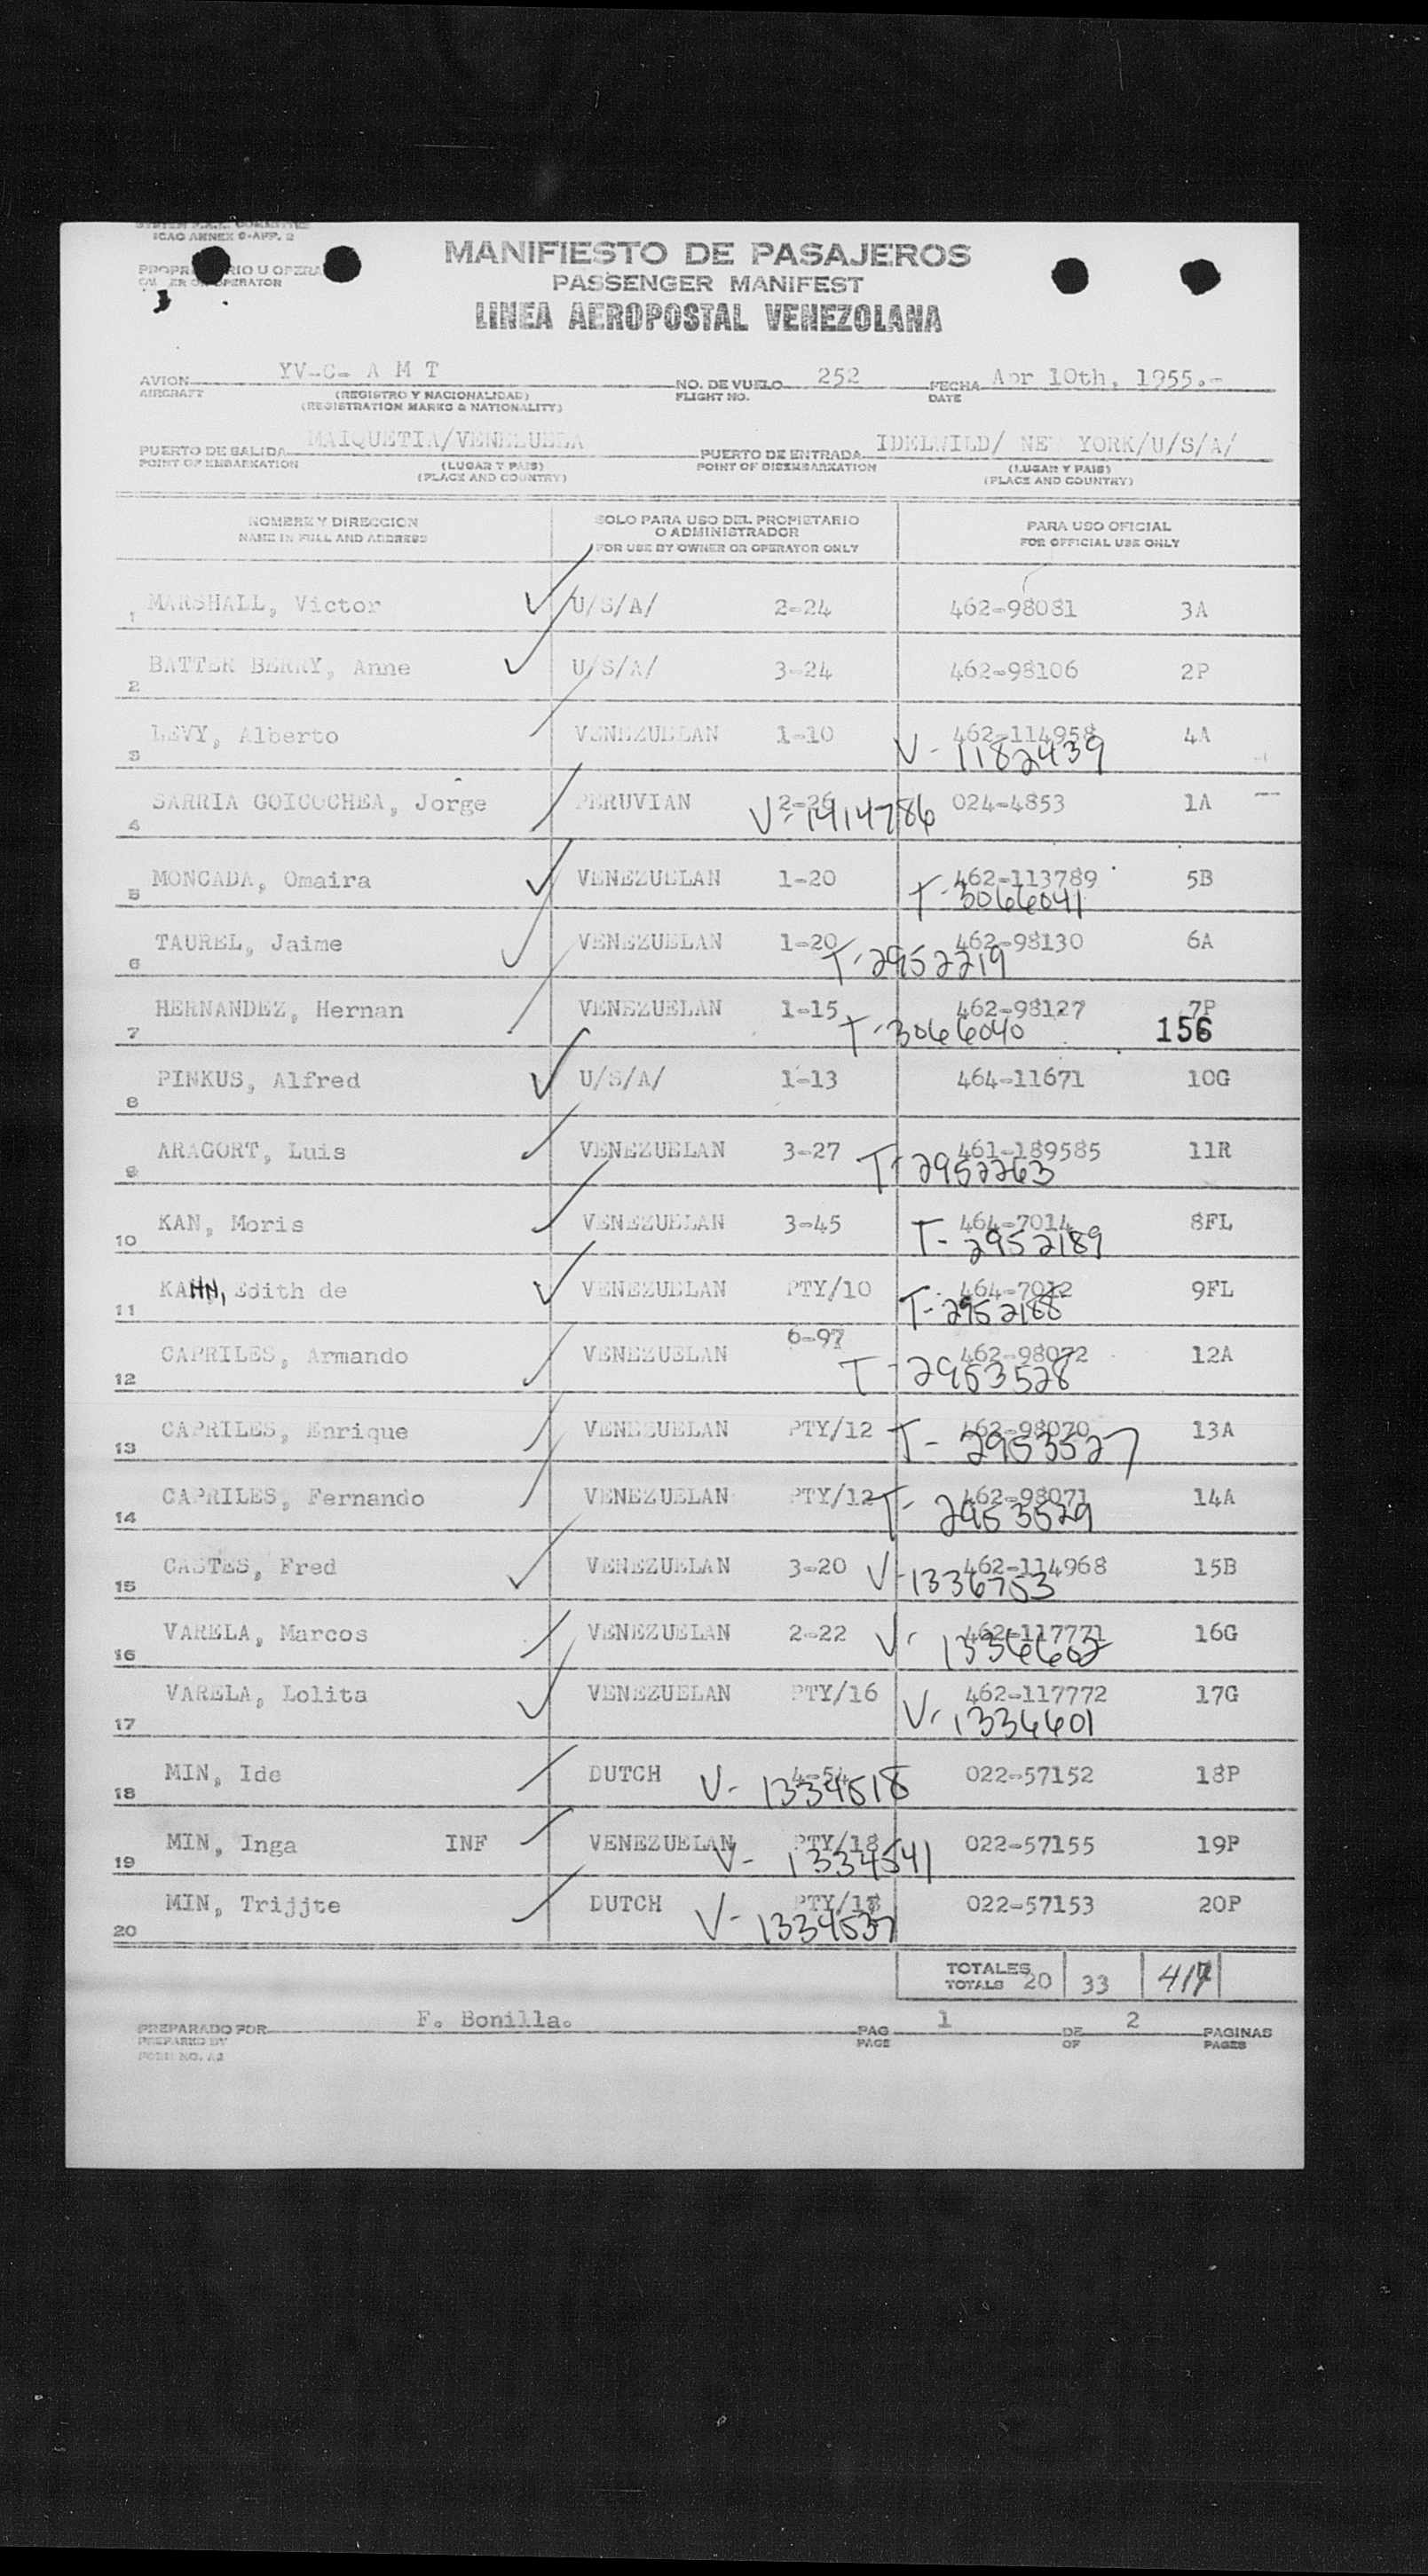 ICAO ANNEX 9-APP. 2
MANIFIESTO DE PASAJEROS
PASSENGER MANIFEST
LINEA AEROPOSTAL VENEZOLANA
AVION YV-C- A M T NO. DE VUELO 252 FECHA Apr 10th, 1955.-
AIRCRAFT (REGISTRO Y NACIONALIDAD) FLIGHT NO. DATE
(REGISTRATION MARKS & NATIONALITY)
PUERTO DE SALIDA MAIQUETIA/VENEZUELA PUERTO DE ENTRADA IDELWILD/ NE YORK/U/S/A/
POINT OF EMBARKATION (LUGAR Y PAIS) POINT OF DISEMBARKATION (LUGAR Y PAIS)
(PLACE AND COUNTRY) (PLACE AND COUNTRY)
NOMBRE Y DIRECCION SOLO PARA USO DEL PROPIETARIO PARA USO OFICIAL
NAME IN FULL AND ADDRESS O ADMINISTRADOR FOR OFFICIAL USE ONLY
FOR USE BY OWNER OR OPERATOR ONLY
1 MARSHALL, Victor U/S/A/ 2-24 462-98081 3A
2 BATTER BERRY, Anne U/S/A/ 3-24 462-98106 2P
3 LEVY, Alberto VENEZUELAN 1-10 462-114958 4A
V- 1182439
4 SARRIA GOICOCHEA, Jorge PERUVIAN 2-26 024-4853 1A
V-1414786
5 MONCADA, Omaira VENEZUELAN 1-20 462-113789 5B
T-3066041
6 TAUREL, Jaime VENEZUELAN 1-20 462-98130 6A
T-2952219
7 HERNANDEZ, Hernan VENEZUELAN 1-15 462-98127 7P
T-3066040 156
8 PINKUS, Alfred U/S/A/ 1-13 464-11671 10G
9 ARAGORT, Luis VENEZUELAN 3-27 461-189585 11R
T-2952263
10 KAN, Moris VENEZUELAN 3-45 464-7014 8FL
T-2952189
11 KAHN, Edith de VENEZUELAN PTY/10 464-7012 9FL
T-2952188
12 CAPRILES, Armando VENEZUELAN 6-97 462-98072 12A
T-2953528
13 CAPRILES, Enrique VENEZUELAN PTY/12 462-98070 13A
T-2953527
14 CAPRILES, Fernando VENEZUELAN PTY/12 462-98071 14A
T-2953529
15 CASTES, Fred VENEZUELAN 3-20 462-114968 15B
V-1336753
16 VARELA, Marcos VENEZUELAN 2-22 462-117771 16G
V-1336602
17 VARELA, Lolita VENEZUELAN PTY/16 462-117772 17G
V-1336601
18 MIN, Ide DUTCH 4-54 022-57152 18P
V- 1334518
19 MIN, Inga INF VENEZUELAN PTY/18 022-57155 19P
V- 1334541
20 MIN, Trijjte DUTCH PTY/18 022-57153 20P
V-1334537
TOTALES
TOTALS 20 33 417
PREPARADO POR F. Bonilla. PAG 1 DE 2 PAGINAS
PREPARED BY PAGE OF PAGES
FORM NO. A2